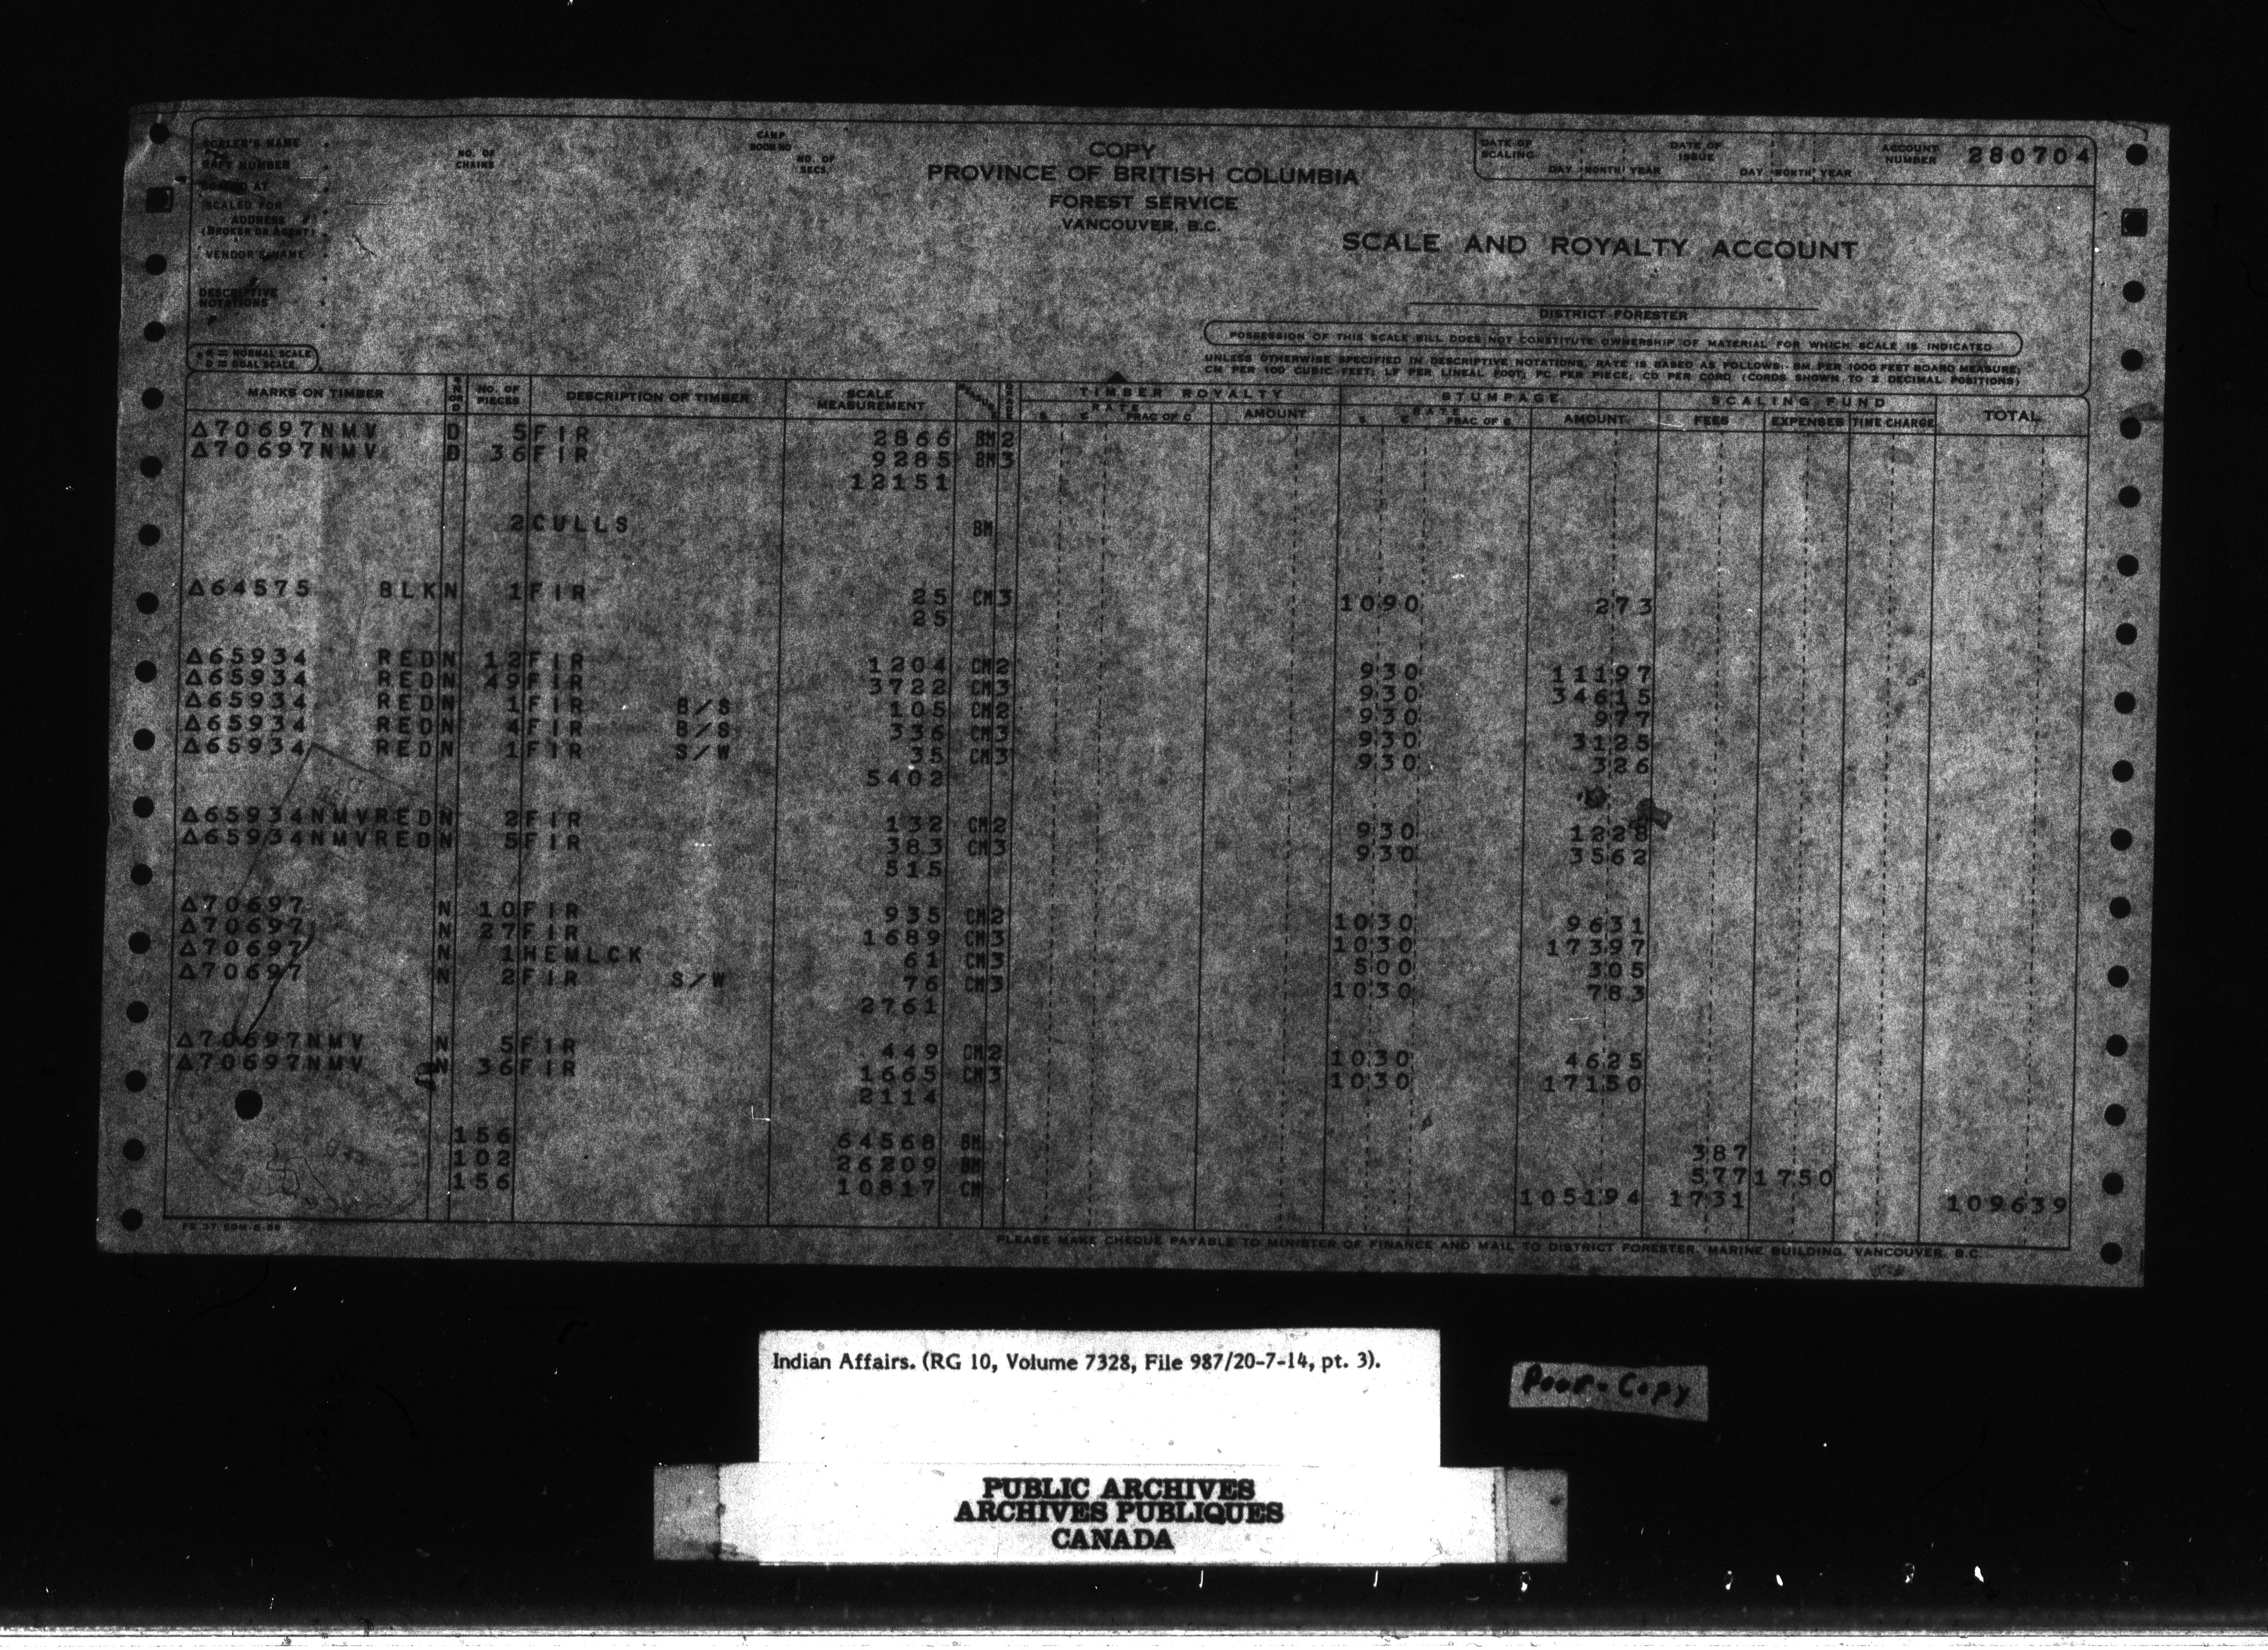 SCALER'S NAME
RAFT NUMBER
SCALED AT
SCALED FOR
ADDRESS
(BROKER OR AGENT)
VENDOR'S NAME
DESCRIPTIVE
NOTATIONS
NO. OF
CHAINS
CAMP
BOOM NO
NO. OF
SECS.
COPY
PROVINCE OF BRITISH COLUMBIA
FOREST SERVICE
VANCOUVER, B.C.
DATE OF
SCALING
DAY MONTH YEAR
DATE OF
ISSUE
DAY MONTH YEAR
ACCOUNT
NUMBER
280704
SCALE AND ROYALTY ACCOUNT
DISTRICT FORESTER
POSSESSION OF THIS SCALE BILL DOES NOT CONSTITUTE OWNERSHIP OF MATERIAL FOR WHICH SCALE IS INDICATED
UNLESS OTHERWISE SPECIFIED IN DESCRIPTIVE NOTATIONS, RATE IS BASED AS FOLLOWS: BM PER 1000 FEET BOARD MEASURE;
CM PER 100 CUBIC FEET; LF PER LINEAL FOOT; PC PER PIECE; CD PER CORD (CORDS SHOWN TO 2 DECIMAL POSITIONS)
N = NORMAL SCALE
D = DUAL SCALE
MARKS ON TIMBER N OR D NO. OF PIECES DESCRIPTION OF TIMBER SCALE MEASUREMENT GRADE TIMBER ROYALTY STUMPAGE SCALING FUND TOTAL
$ RATE ¢ FRAC OF ¢ AMOUNT $ RATE ¢ FRAC OF ¢ AMOUNT FEES EXPENSES TIME CHARGE
Δ70697NMV D 5 FIR 2866 BM 2
Δ70697NMV D 36 FIR 9285 BM 3
12151
2 CULLS BM
Δ64575 BLK N 1 FIR 25 CM 3 1090 273
25
Δ65934 RED N 12 FIR 1204 CM 2 930 11197
Δ65934 RED N 49 FIR 3722 CM 3 930 34615
Δ65934 RED N 1 FIR B/S 105 CM 2 930 977
Δ65934 RED N 4 FIR B/S 336 CM 3 930 3125
Δ65934 RED N 1 FIR S/W 35 CM 3 930 326
5402
Δ65934NMVRED N 2 FIR 132 CM 2 930 1228
Δ65934NMVRED N 5 FIR 383 CM 3 930 3562
515
Δ70697 N 10 FIR 935 CM 2 1030 9631
Δ70697 N 27 FIR 1689 CM 3 1030 17397
Δ70697 N 1 HEMLCK 61 CM 3 500 305
Δ70697 N 2 FIR S/W 76 CM 3 1030 783
2761
Δ70697NMV N 5 FIR 449 CM 2 1030 4625
Δ70697NMV N 36 FIR 1665 CM 3 1030 17150
2114
156 64568 BM 387
102 26209 BM 577 1750
156 10817 CM 105194 1731 109639
PLEASE MAKE CHEQUE PAYABLE TO MINISTER OF FINANCE AND MAIL TO DISTRICT FORESTER, MARINE BUILDING, VANCOUVER, B.C.
Indian Affairs. (RG 10, Volume 7328, File 987/20-7-14, pt. 3).
Poor-Copy
PUBLIC ARCHIVES
ARCHIVES PUBLIQUES
CANADA